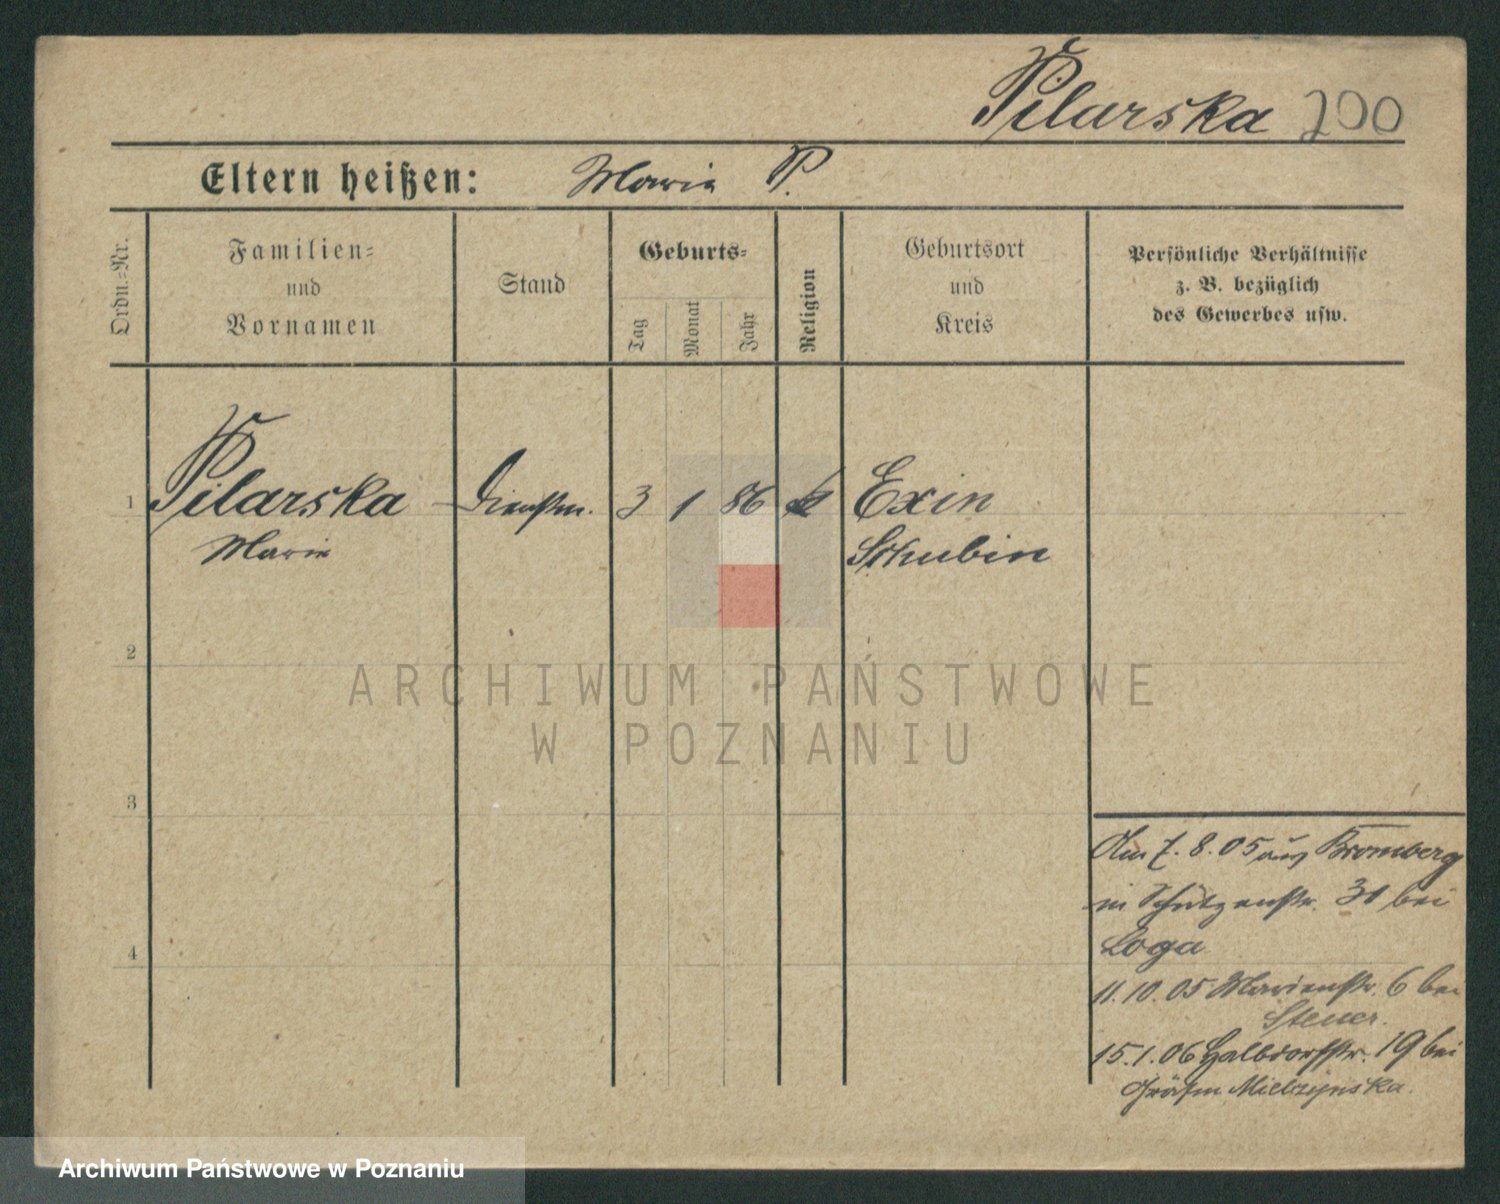 Pilarska 200
Eltern heißen: Marie P.
Ordn.-Nr.
Familien-
und
Vornamen
Stand
Geburts-
Tag
Monat
Jahr
Religion
Geburtsort
und
Kreis
Persönliche Verhältnisse
z. B. bezüglich
des Gewerbes usw.
1 Pilarska Dienstm. 3 1 86 k Exin
Marie Schubin
2
3
4
Am 7. 8. 05 aus Bromberg
in Schützenstr. 31 bei
Loga
11. 10. 05 Marienstr. 6 bei
Steuer.
15. 1. 06 Halbdorfstr. 19 bei
Gräfin Mielzynska.
ARCHIWUM PAŃSTWOWE
W POZNANIU
Archiwum Państwowe w Poznaniu